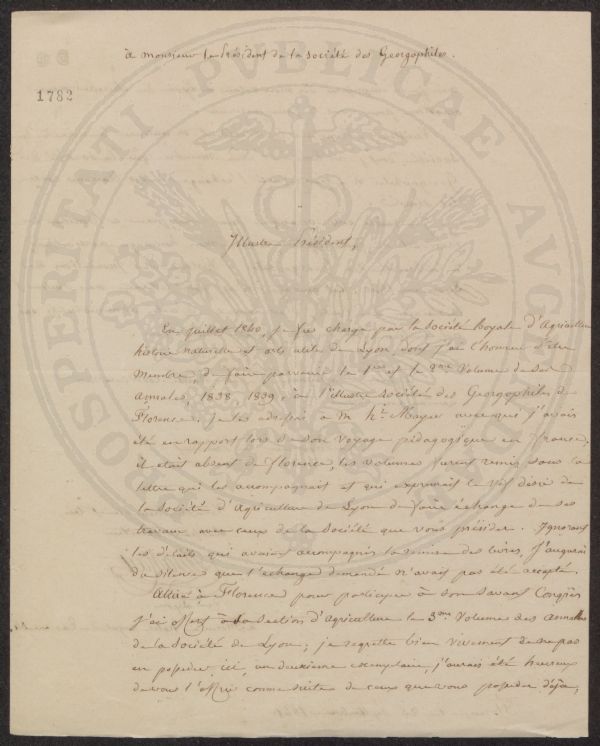 à monsieur le Président de la société des Georgophiles.
1782
PROSPERITATI PVBLICAE AVGENDAE
Illustre Président,
En juillet 1840, je fus chargé par la Société Royale d'Agriculture
histoire naturelle et arts utiles de Lyon, dont j'ai l'honneur d'être
Membre, de faire parvenir le 1er et le 2me Volume de ses
annales, 1838, 1839, à l'illustre société des Georgophiles de
Florence. Je les adressai à M. Mayer avec qui j'avais
été en rapport lors de son voyage pédagogique en France,
il était absent de Florence, les volumes furent remis sans la
lettre qui les accompagnait et qui exprimait le vif désir de
la société d'Agriculture de Lyon de faire échange de ses
travaux avec ceux de la Société que vous présidez. Ignorant
les détails qui avaient accompagnés la remise des livres, j'augurai
du silence que l'échange demandé n'avait pas été accepté.
Attiré à Florence pour participer à son savant Congrès
j'ai offert à la section d'Agriculture le 3me Volume des annales
de la Société de Lyon; je regrette bien vivement de ne pas
en posséder ici, un deuxième exemplaire, j'aurais été heureux
de vous l'offrir comme suite de ceux que vous possédez déjà,